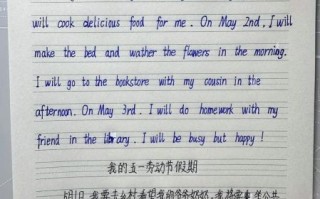 will cook delicious food for me. On May 2nd, I will
make the bed and wather the flawers in the morning.
I will go to the bookstore with my cousin in the
afternoon. On May 3rd. I will do homework with my
friend in the library. I will be busy but happy!
我的五一劳动节假期
5月1日,我要去乡村看望我的爷爷奶奶,我将乘坐公共